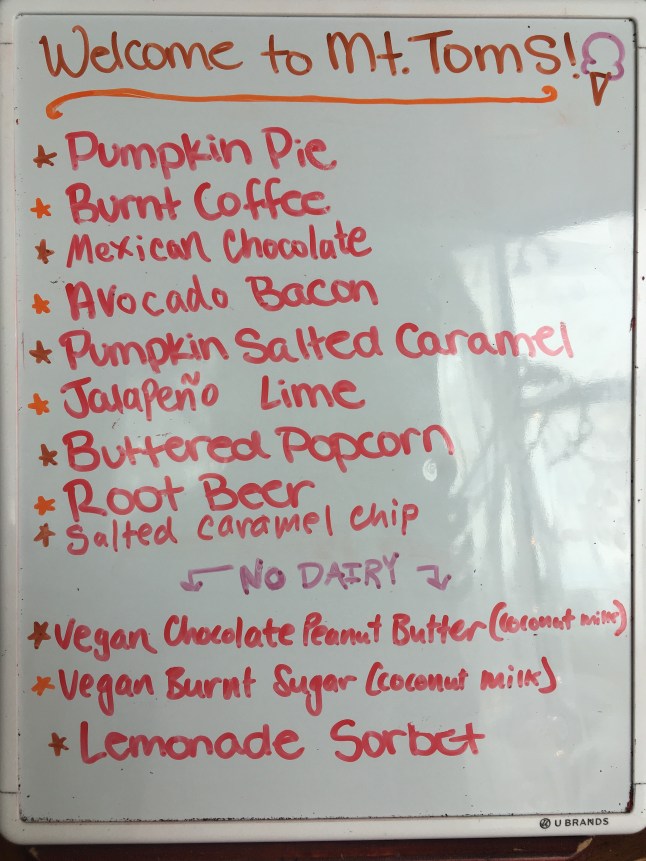 Welcome to Mt. Toms!
Pumpkin Pie
Burnt Coffee
Mexican Chocolate
Avocado Bacon
Pumpkin Salted Caramel
Jalapeño Lime
Buttered Popcorn
Root Beer
Salted Caramel Chip
NO DAIRY
Vegan Chocolate Peanut Butter (coconut milk)
Vegan Burnt Sugar (coconut milk)
Lemonade Sorbet
U BRANDS